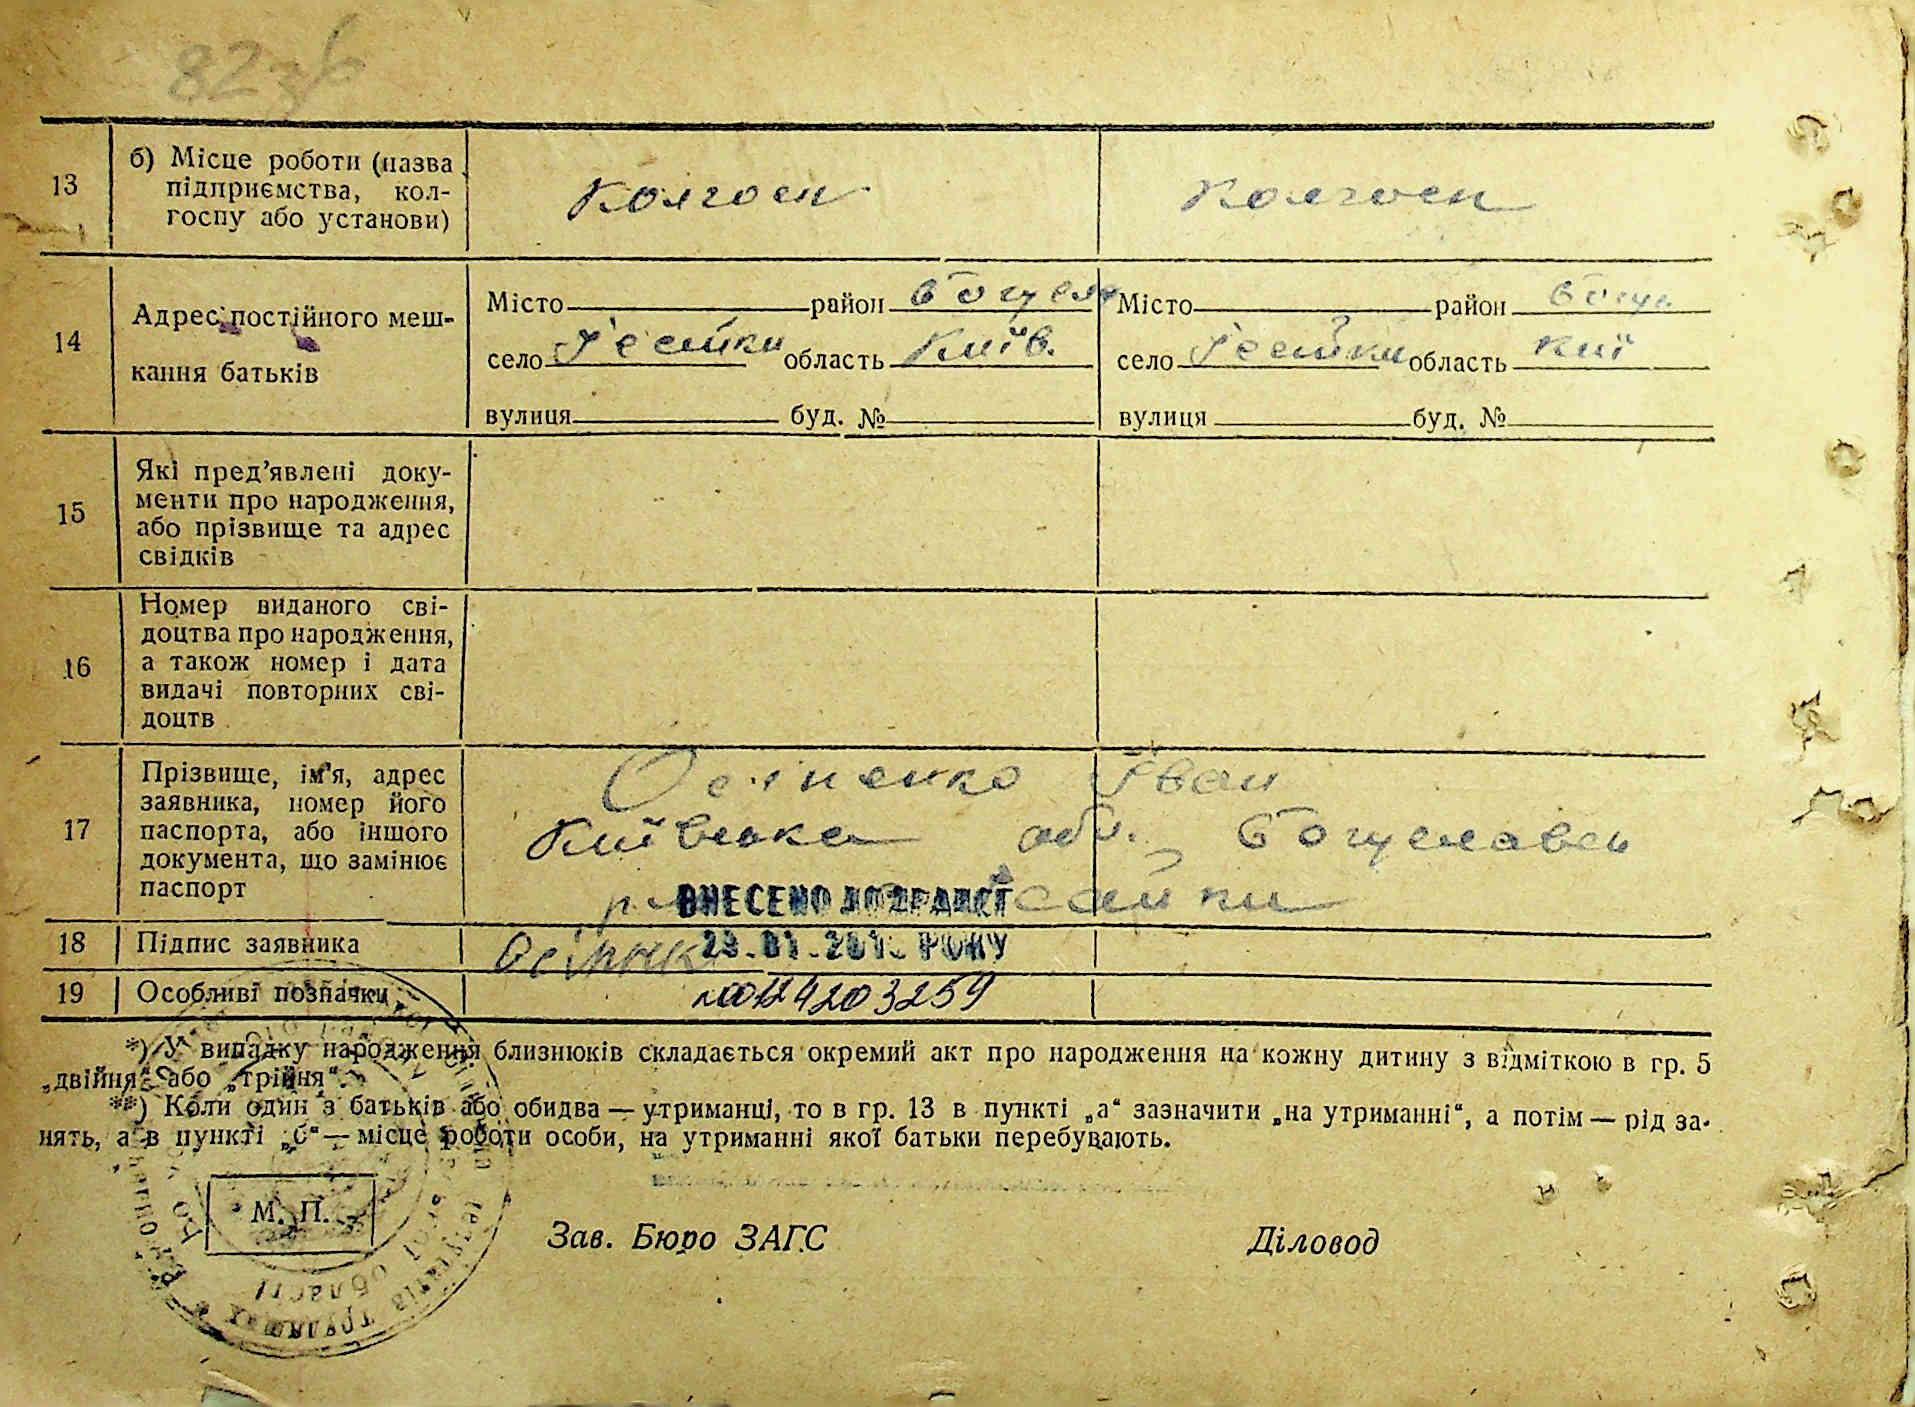 82зв
13
б) Місце роботи (назва
підприємства, кол-
госпу або установи)
Колгосп
Колгосп
14
Адрес постійного меш-
кання батьків
Місто район Богусл
село Ісайки область Київ.
вулиця буд. №
Місто район Богус.
село Ісайки область Киї
вулиця буд. №
15
Які пред'явлені доку-
менти про народження,
або прізвище та адрес
свідків
16
Номер виданого сві-
доцтва про народження,
а також номер і дата
видачі повторних сві-
доцтв
17
Прізвище, ім'я, адрес
заявника, номер його
паспорта, або іншого
документа, що замінює
паспорт
Осіпенко Іван
Київська обл. Богуславсь
ВНЕСЕНО ДО ДРАЦСГ
18 Підпис заявника
РОКУ
19 Особливі позначки
00124203259
*) У випадку народження близнюків складається окремий акт про народження на кожну дитину з відміткою в гр. 5
„двійня“ або „трійня“.
**) Коли один з батьків або обидва — утриманці, то в гр. 13 в пункті „а“ зазначити „на утриманні“, а потім — рід за-
нять, а в пункті „б“ — місце роботи особи, на утриманні якої батьки перебувають.
М. П.
Зав. Бюро ЗАГС
Діловод
області
трудящих